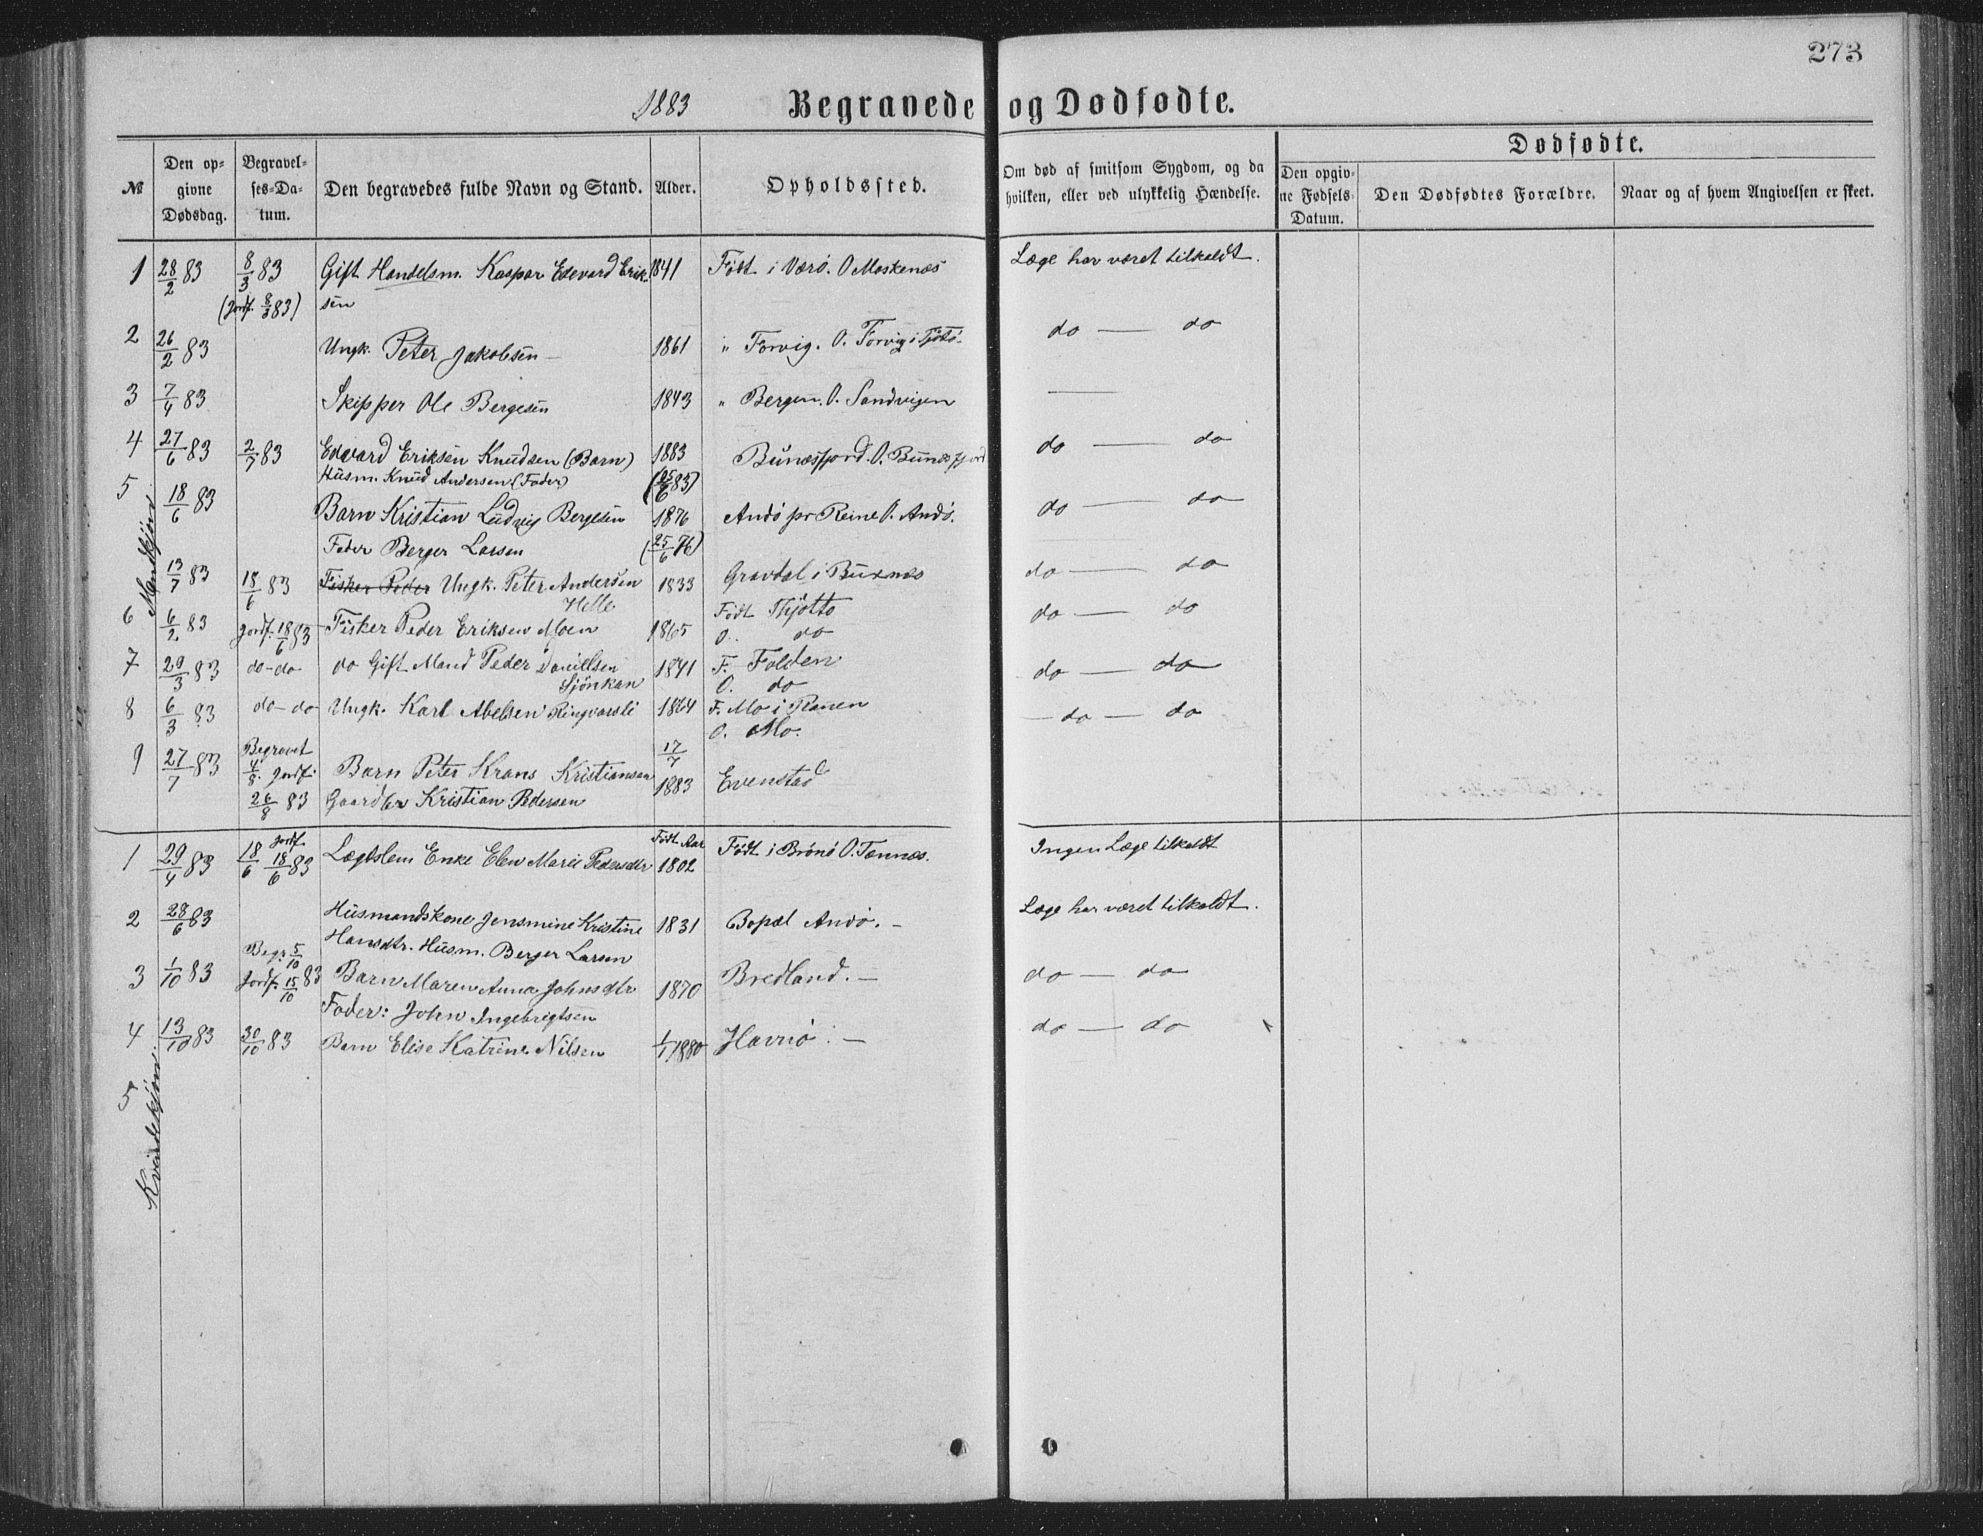 273
1883 Begravede og Dødfødte.
№ Den opgivne Dødsdag. Begravelses-Datum. Den begravedes fulde Navn og Stand. Alder. Opholdssted. Om død af smitsom Sygdom, og da hvilken, eller ved ulykkelig Hændelse. Dødfødte.
Den opgivne Fødsels-Datum. Den Dødfødtes Forældre. Naar og af hvem Angivelsen er skeet.
Mandkjøn
1 28/2 83 8/3 83 Gift Handelsm. Kaspar Edevard Erik- 1841 Født i Værø. O Moskenæs Læge har været tilkaldt.
(Jordf. 8/3 83) sen
2 26/2 83 Ungk. Peter Jakobsen — 1861 " Forvig. O. Forvig i Tjøtø. do — do
3 7/4 83 Skipper Ole Bergesen 1843 " Bergen. O. Sandvigen —
4 27/6 83 2/7 83 Edevard Eriksen Knudsen (Barn) 1883 Bunæsfjord. O. Bunæsfjord do — do
Husm. Knud Andersen (Fader) (25/6 83)
5 18/6 83 Barn Kristian Ludvig Bergesen 1876 Andø pr Reine O. Andø. do — do
Fader Berger Larsen (25/6 76)
13/7 83 18/6 83 Fisker Peder Ungk. Peter Andersen 1833 Gravdal i Buxnæs do — do
Helle
6 6/2 83 Jordf. 18/6 83 Fisker Peder Eriksen Moen 1865 Født Thjøtto do — do
O. do
7 29/3 83 do - do do Gift Mand Peder Danielsen 1841 F. Folden do — do
Sjönkan O. do
8 6/3 83 do - do Ungk. Karl Abelsen Ringvarsli 1864 F. Mo i Ranen — do — do
O. Mo.
9 27/7 83 Begravet 4/8. Jordf. Barn Peter Krans Kristiansen 17/7 1883 Evenstad
26/8 83 Gaardbr Kristian Pedersen
Kvindekjøn
1 29/4 83 18/6 Jordf. 18/6 83 Lægdslem Enke Elen Marie Pedersdtr Født Aar 1802 Født i Brønø O. Tennes. Ingen Læge tilkaldt
2 28/6 83 Husmandskone Jensmine Kristine 1831 Bopæl Andø. — Læge har været tilkaldt.
Hansdtr. Husm. Berger Larsen
3 1/10 83 Begr. 5/10 Jordf. 15/10 83 Barn Maren Anna Johnsdtr 1870 Bredland. — do — do
Fader: John Ingebrigtsen
4 13/10 83 30/10 83 Barn Elise Katrine Nilsen 1/1 1880 Havnø. — do — do
5